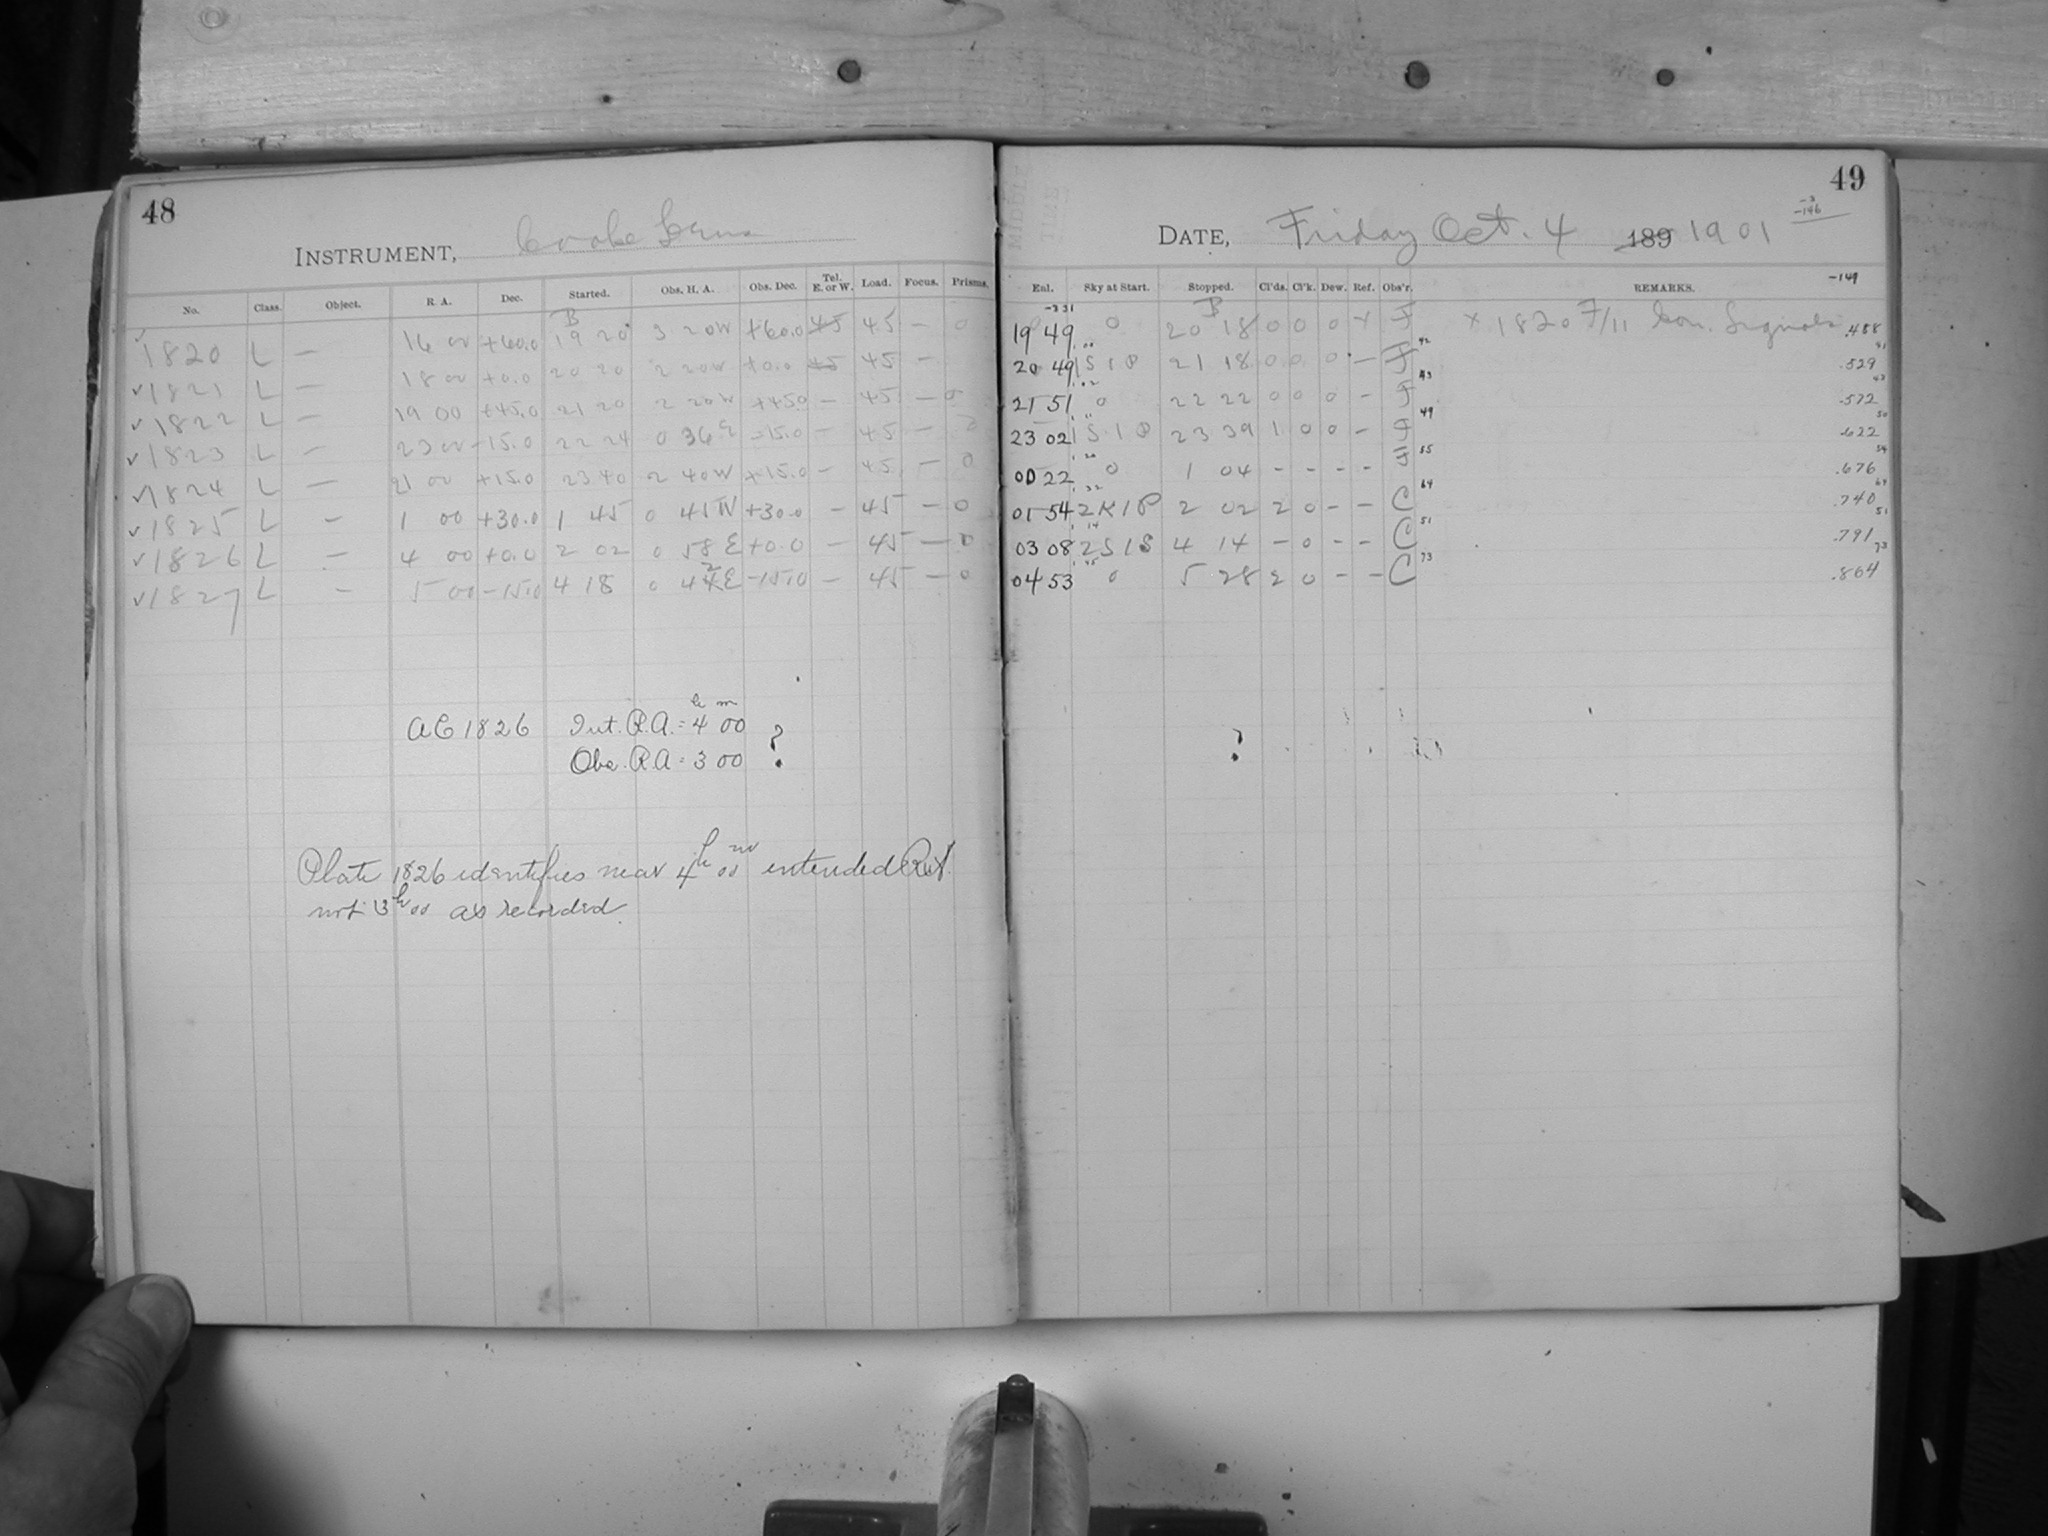 48
INSTRUMENT, Cooke Lens
No. Class. Object. R. A. Dec. Started. Obs. H. A. Obs. Dec. Tel. E. or W. Load. Focus. Prisms.
✓ 1820 L — 16 00 +60.0 19 20 3 20W +60.0 45 45 — 0
✓ 1821 L — 18 00 +0.0 20 20 2 20W +0.0 45 45 —
✓ 1822 L — 19 00 +45.0 21 20 2 20W +45.0 — 45 — 0
✓ 1823 L — 23 00 -15.0 22 24 0 36E -15.0 — 45 — 0
✓ 1824 L — 21 00 +15.0 23 40 2 40W +15.0 — 45 — 0
✓ 1825 L — 1 00 +30.0 1 45 0 45W +30.0 — 45 — 0
✓ 1826 L — 4 00 +0.0 2 02 0 58E +0.0 — 45 — 0
✓ 1827 L — 5 00 -15.0 4 18 0 42E -15.0 — 45 — 0
AC 1826 Int. R.A. = 4h 00m
Obs. R.A. = 3 00 ?
Plate 1826 identifies near 4h 00m intended R.A.
not 3h 00 as recorded
49
DATE, Friday Oct. 4 189 1901
-3
-146
-149
Enl. Sky at Start. Stopped. Cl'ds. Cl'k. Dew. Ref. Obs'r. REMARKS.
19 49 0 20 18 0 0 0 x F x 1820 F/11 Con. Signals .488
20 49 1S1P 21 18 0 0 0 — F 42 .529 41
21 51 0 22 22 0 0 0 — F 43 .572 43
23 02 1S1P 23 39 1 0 0 — F 49 .622 50
00 22 0 1 04 — — — — F 55 .676 54
01 54 2K1P 2 02 2 0 — — C 64 .740 64
03 08 2S1S 4 14 — 0 — — C 51 .791 51
04 53 0 5 28 2 0 — — C 73 .864 73
?